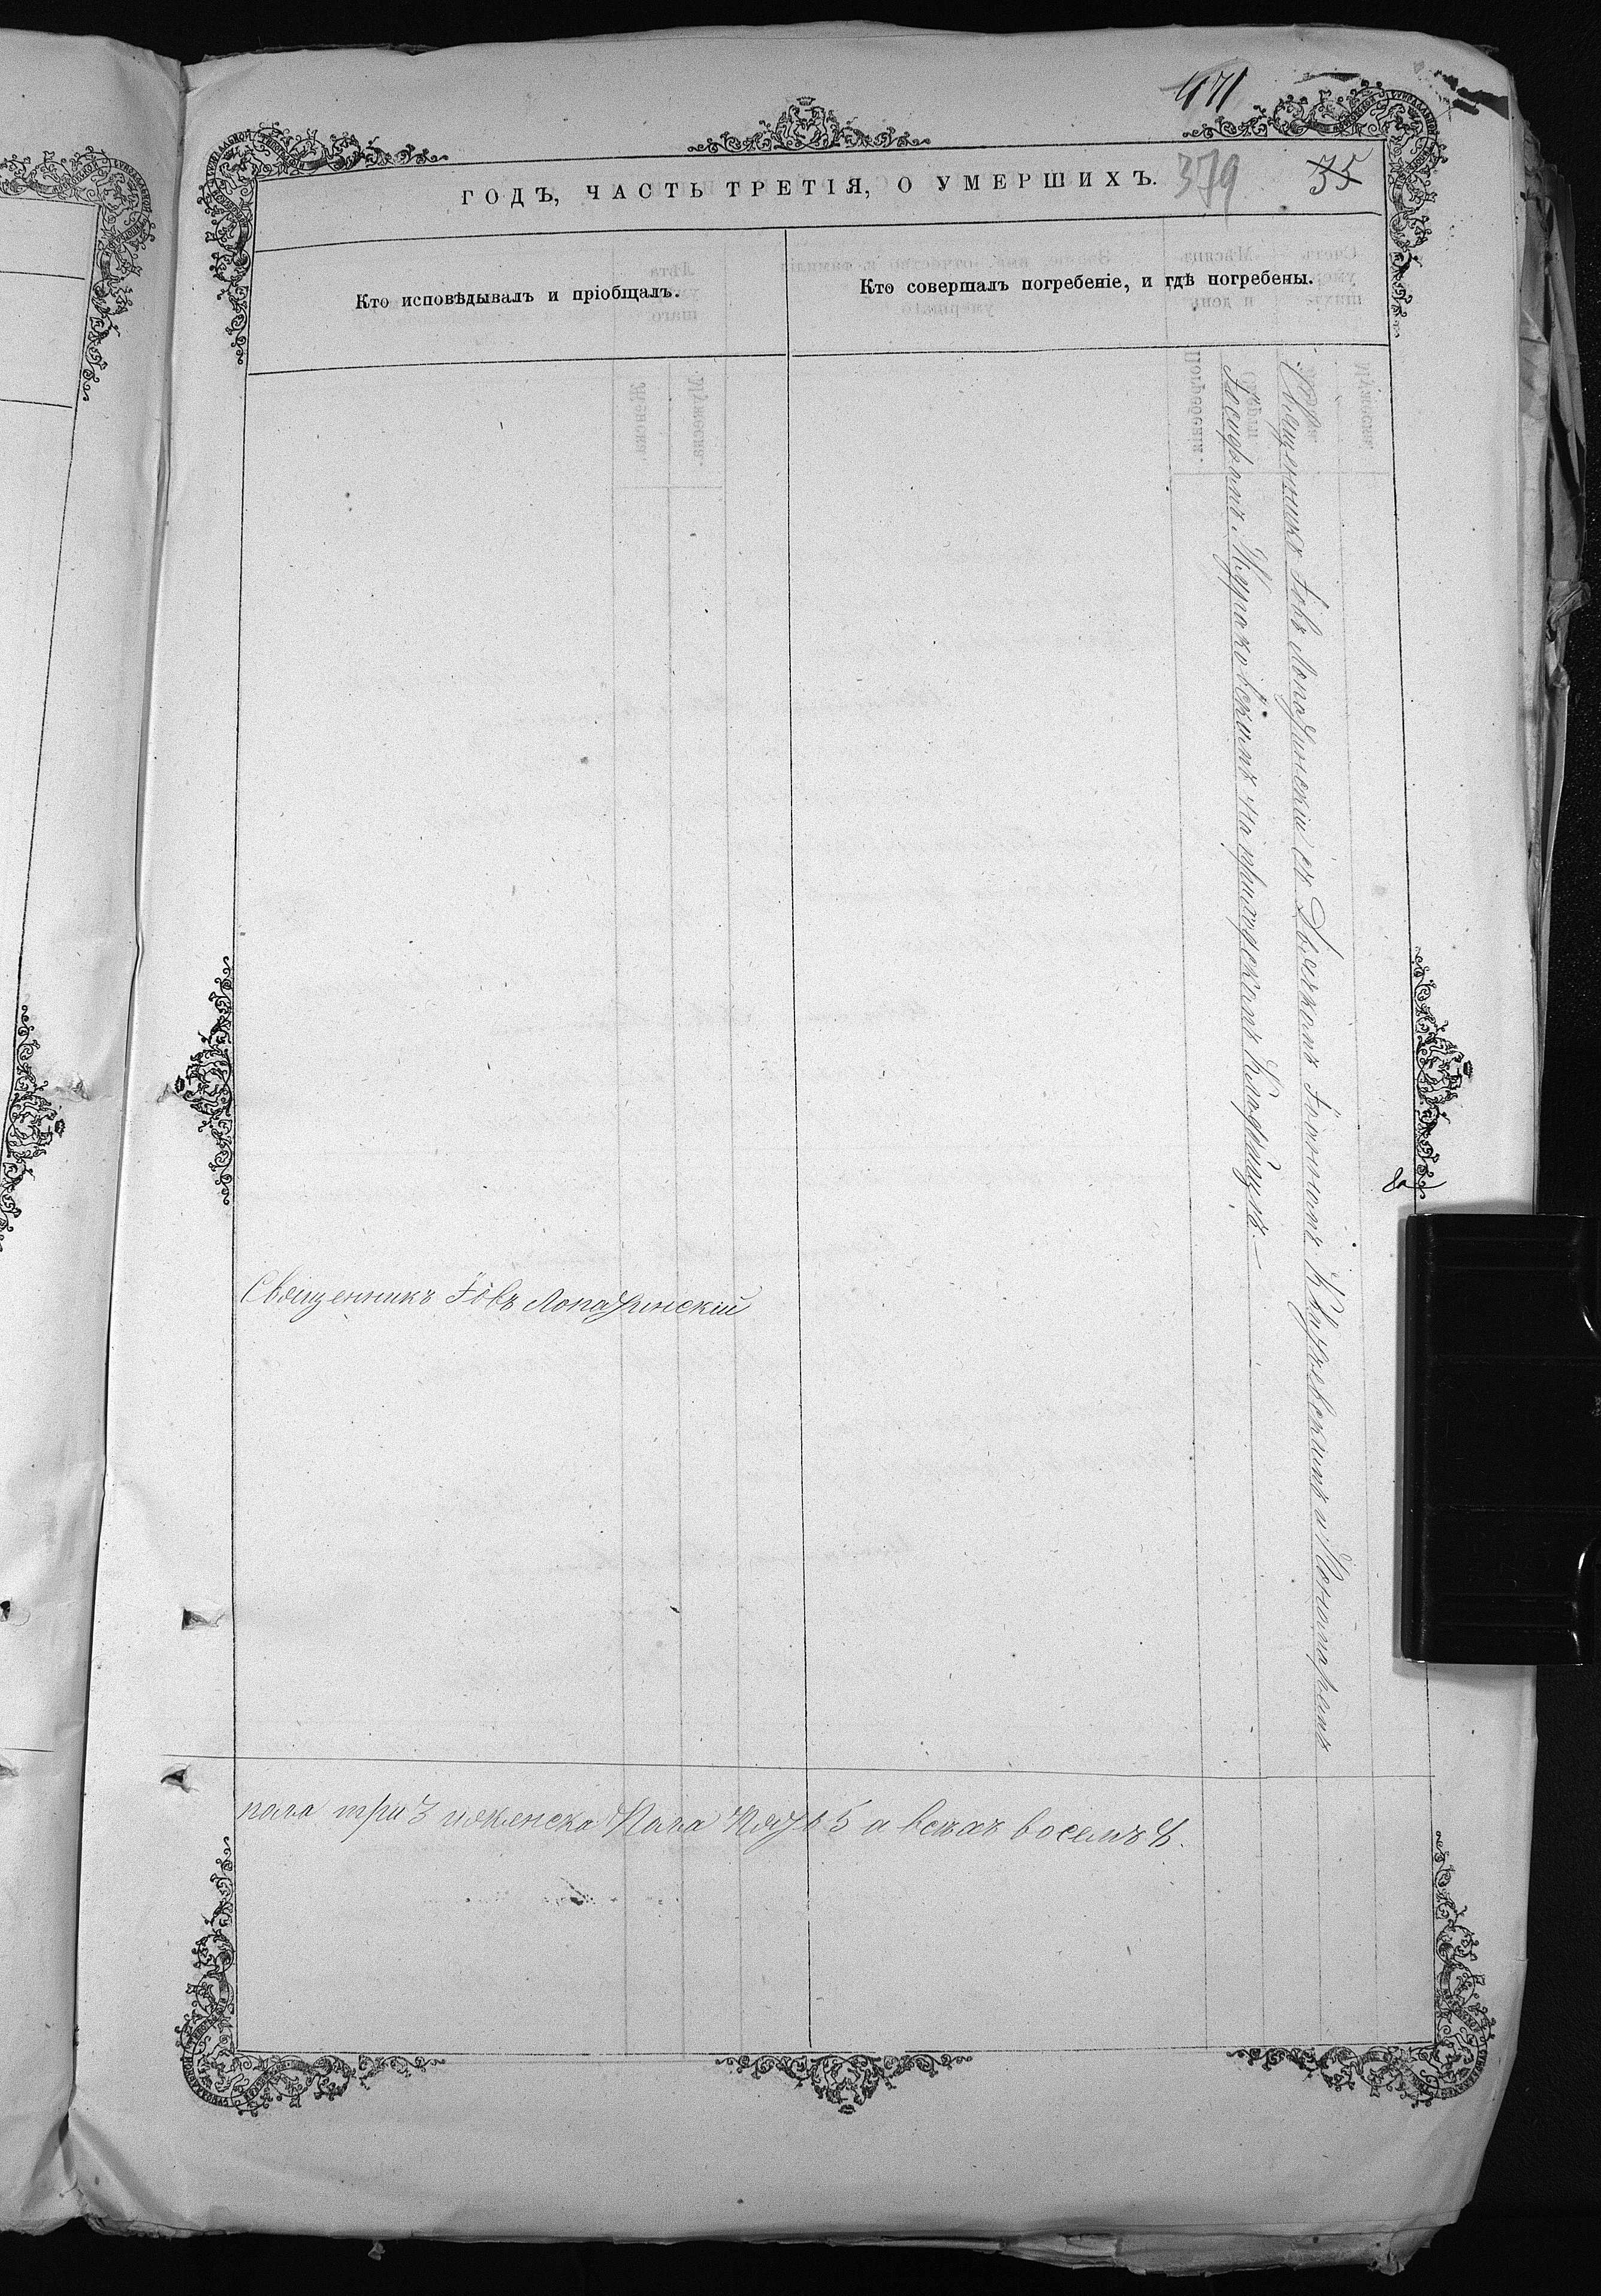 471
379 35
ГОДЪ, ЧАСТЬ ТРЕТІЯ, О УМЕРШИХЪ.
Кто исповѣдывалъ и пріобщалъ.
Кто совершалъ погребеніе, и гдѣ погребены.
Священникъ Іовъ Лопатинскій съ Дьячкомъ Іоанномъ и Пономаремъ
Іосифомъ на приходскомъ Кладбищѣ.
Священникъ Іовъ Лопатинскій
пола три 3 и женска пола пять 5 а всѣхъ восемь 8.